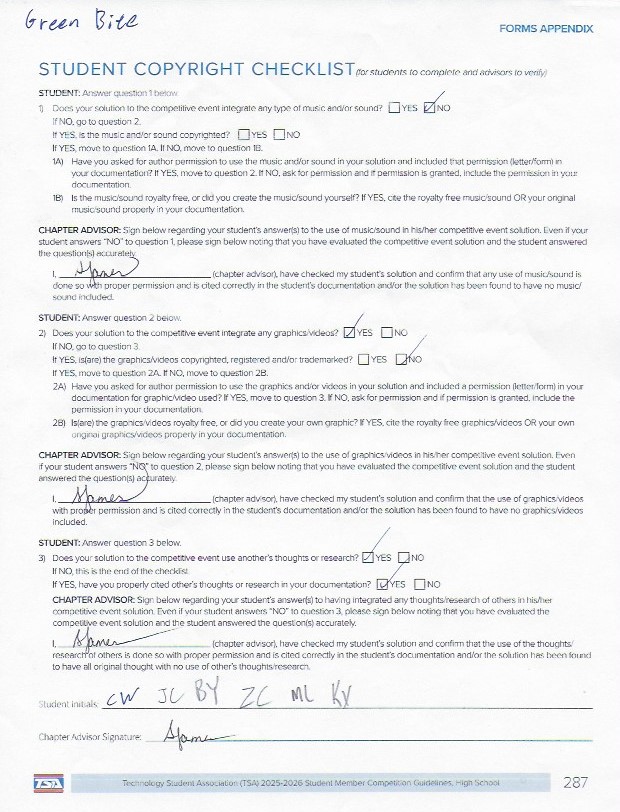 Green Bite
FORMS APPENDIX
STUDENT COPYRIGHT CHECKLIST (for students to complete and advisors to verify)
STUDENT: Answer question 1 below.
1) Does your solution to the competitive event integrate any type of music and/or sound? YES NO
If NO, go to question 2.
If YES, is the music and/or sound copyrighted? YES NO
If YES, move to question 1A. If NO, move to question 1B.
1A) Have you asked for author permission to use the music and/or sound in your solution and included that permission (letter/form) in
your documentation? If YES, move to question 2. If NO, ask for permission and if permission is granted, include the permission in your
documentation.
1B) Is the music/sound royalty free, or did you create the music/sound yourself? If YES, cite the royalty free music/sound OR your original
music/sound properly in your documentation.
CHAPTER ADVISOR: Sign below regarding your student's answer(s) to the use of music/sound in his/her competitive event solution. Even if your
student answers "NO" to question 1, please sign below noting that you have evaluated the competitive event solution and the student answered
the question(s) accurately.
I, (chapter advisor), have checked my student's solution and confirm that any use of music/sound is
done so with proper permission and is cited correctly in the student's documentation and/or the solution has been found to have no music/
sound included.
STUDENT: Answer question 2 below.
2) Does your solution to the competitive event integrate any graphics/videos? YES NO
If NO, go to question 3.
If YES, is(are) the graphics/videos copyrighted, registered and/or trademarked? YES NO
If YES, move to question 2A. If NO, move to question 2B.
2A) Have you asked for author permission to use the graphics and/or videos in your solution and included a permission (letter/form) in your
documentation for graphic/video used? If YES, move to question 3. If NO, ask for permission and if permission is granted, include the
permission in your documentation.
2B) Is(are) the graphics/videos royalty free, or did you create your own graphic? If YES, cite the royalty free graphics/videos OR your own
original graphics/videos properly in your documentation.
CHAPTER ADVISOR: Sign below regarding your student's answer(s) to the use of graphics/videos in his/her competitive event solution. Even
if your student answers "NO" to question 2, please sign below noting that you have evaluated the competitive event solution and the student
answered the question(s) accurately.
I, (chapter advisor), have checked my student's solution and confirm that the use of graphics/videos
with proper permission and is cited correctly in the student's documentation and/or the solution has been found to have no graphics/videos
included.
STUDENT: Answer question 3 below.
3) Does your solution to the competitive event use another's thoughts or research? YES NO
If NO, this is the end of the checklist.
If YES, have you properly cited other's thoughts or research in your documentation? YES NO
CHAPTER ADVISOR: Sign below regarding your student's answer(s) to having integrated any thoughts/research of others in his/her
competitive event solution. Even if your student answers "NO" to question 3, please sign below noting that you have evaluated the
competitive event solution and the student answered the question(s) accurately.
I, (chapter advisor), have checked my student's solution and confirm that the use of the thoughts/
research of others is done so with proper permission and is cited correctly in the student's documentation and/or the solution has been found
to have all original thought with no use of other's thoughts/research.
Student initials: CW JC BY ZC ML KY
Chapter Advisor Signature:
TSA Technology Student Association (TSA) 2025-2026 Student Member Competition Guidelines, High School 287